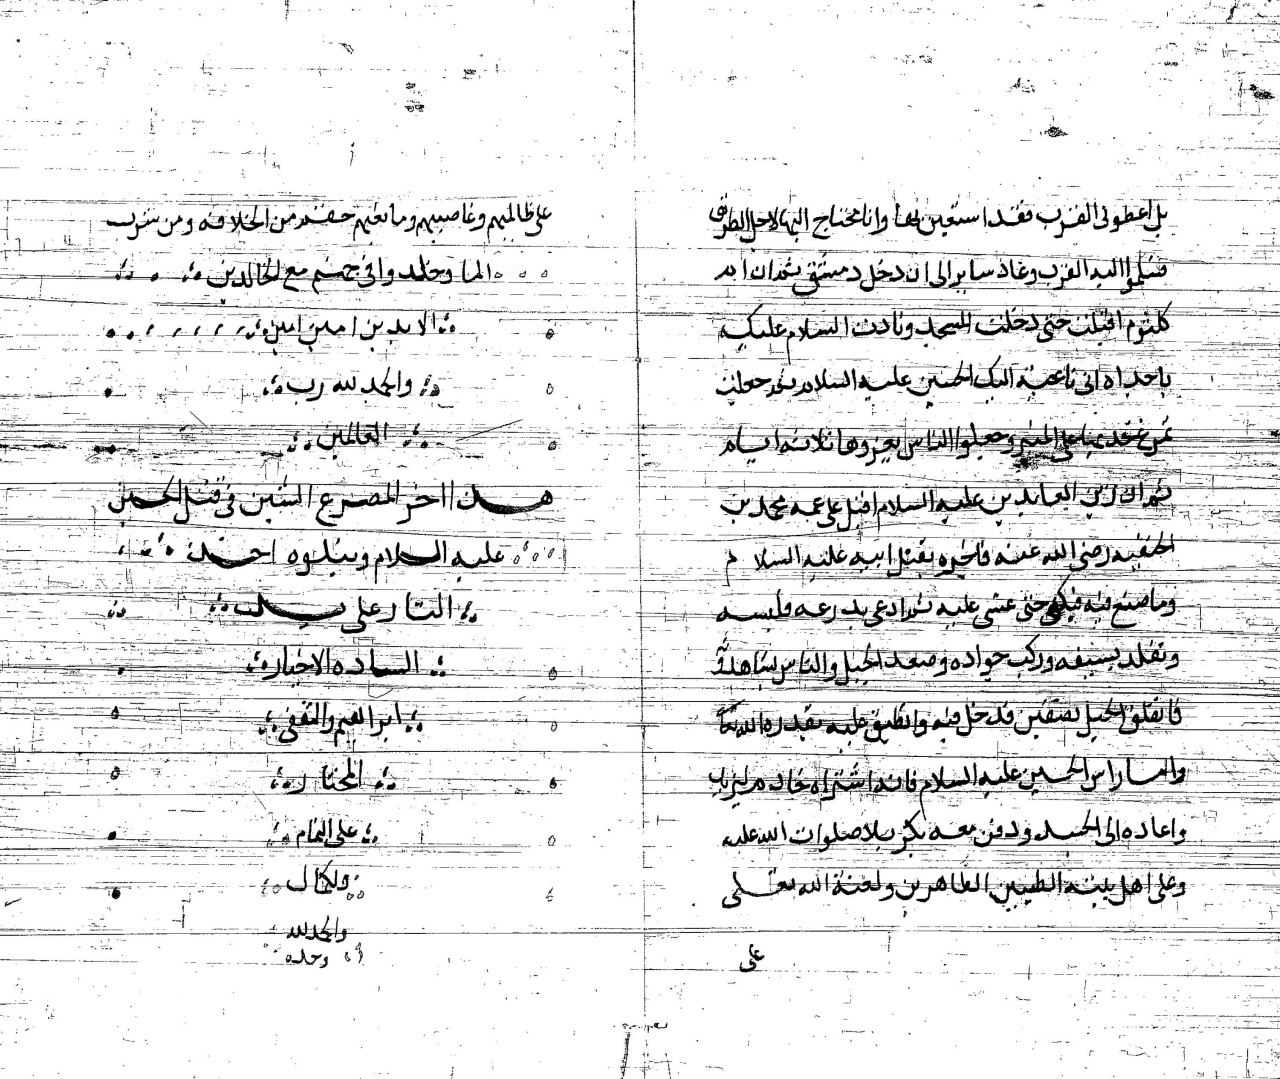 بل اعطونى القرب فقد استعين بها وانا محتاج اليها لاجل الطريق
فسلموا اليه القرب وعاد ساير الى ان دخل دمشق ثم ان ام
كلثوم اقبلت حتى دخلت المسجد ونادت السلام عليك
يا جداه انى ناعية اليك الحسين عليه السلام ثم جعلت
تمرغ خديها على المنبر وجعلوا الناس يعزوها ثلاثة ايام
ثم ان زين العابدين عليه السلام اقبل على عمه محمد بن
الحنفيه رضى الله عنه فاخبره بقتل ابيه عليه السلام
وما صنع فيه فبكى حتى غشى عليه ثم ادعى بدرعه فلبسه
وتقلد بسيفه وركب جواده وصعد الجبل والناس
فانفلق الجبل نصفين فدخل فيه وانطبق عليه بقدرة الله
واما راس الحسين عليه السلام فانه اشتراه
واعاده الى الجسد ودفن معه بكربلا صلوات الله عليه
وعلى اهل بيته الطيبين الطاهرين ولعنة الله تعالى
على
على ظالميهم وغاصبيهم ومانعيهم حقهم من الخلافه ومن شرب
الما وخلد وافى جهنم مع الخالدين
الابدين امين امين
والحمد لله رب
العالمين
هذا اخر المصرع الشين فى قتل الحسين
عليه السلام ويتلوه اخذ
الثار على يد
الساده الاخيار
ابراهيم والثقفى
المختار
على التمام
والكمال
والحمد لله
وحده